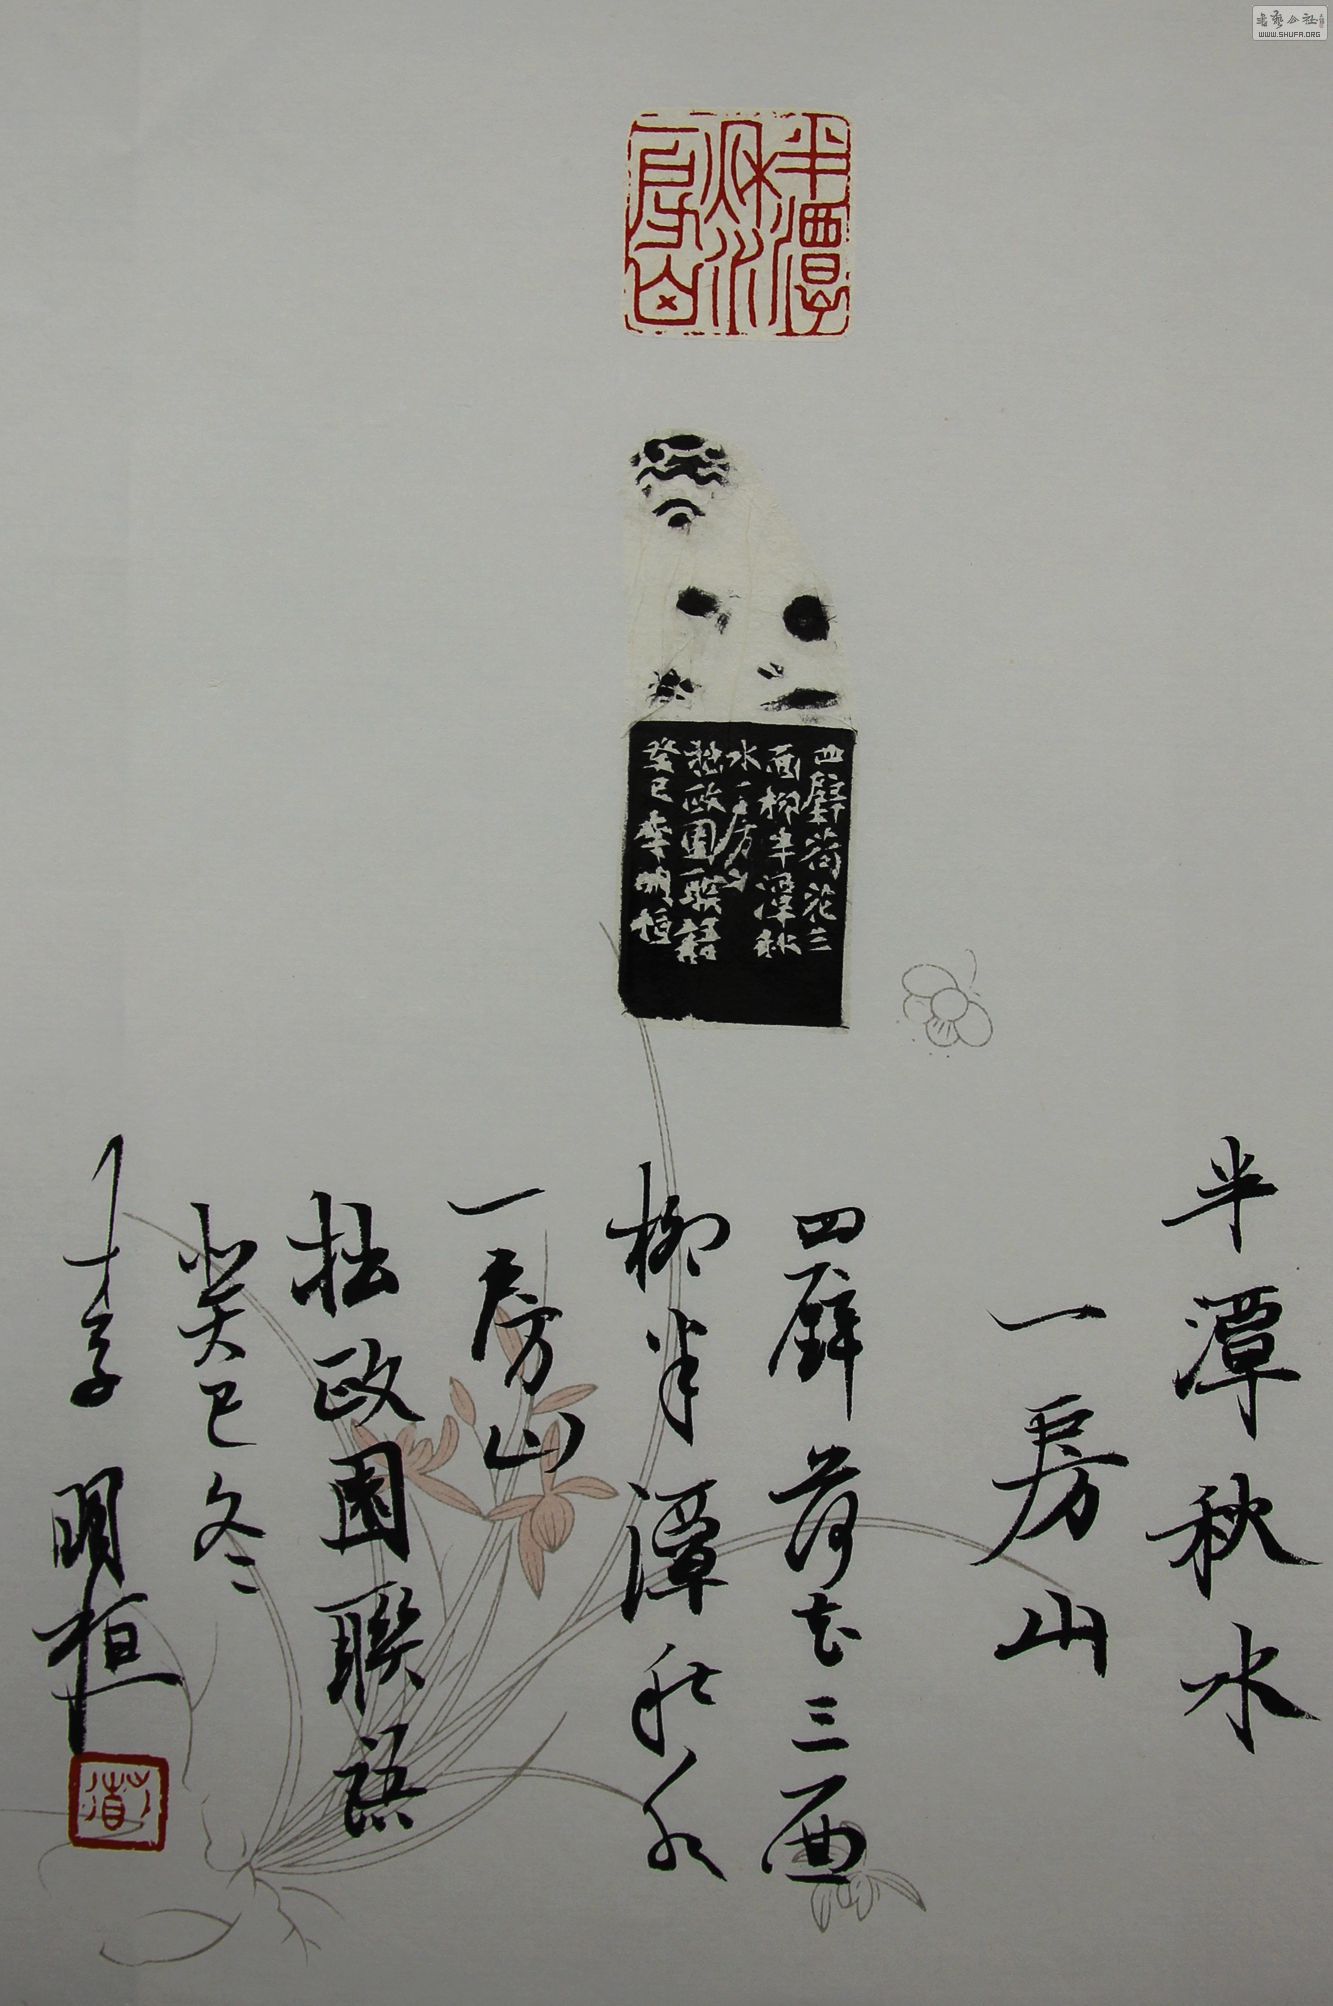 書藝公社
WWW.SHUFA.ORG
半潭
秋水
房山
四壁荷花三
面柳半潭秋
水一房山
拙政園聯語
癸巳李明桓
半潭秋水
一房山
四壁荷花三面
柳半潭秋水
一房山
拙政園聯語
癸巳冬
李明桓